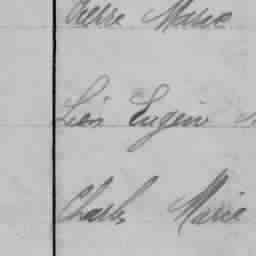 Pierre Marie
Léon Eugène
Charles Marie